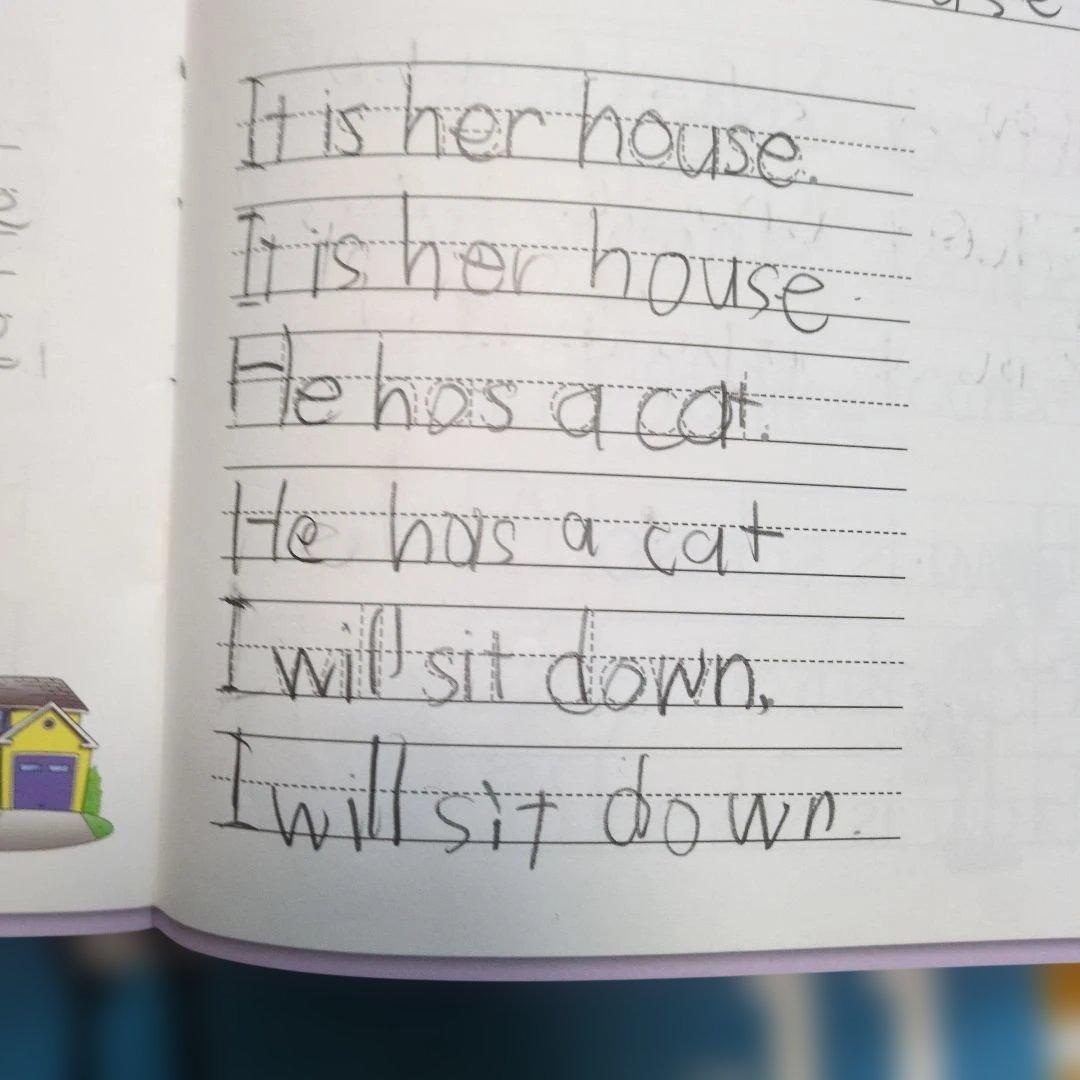 It is her house.
It is her house.
He has a cat.
He has a cat
I will sit down,
I will sit down.